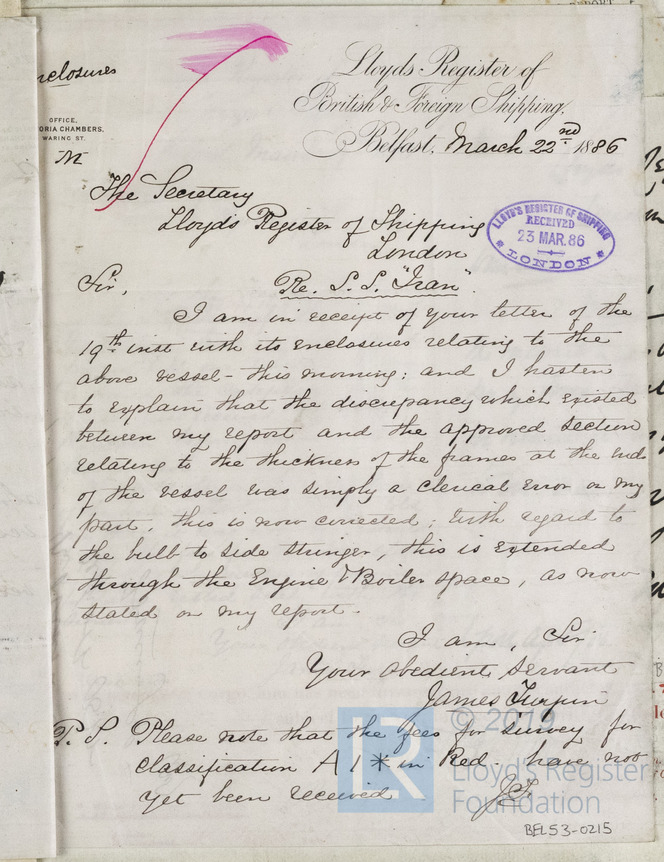 nclosures
OFFICE,
ORIA CHAMBERS,
WARING ST.
Lloyds Register of
British & Foreign Shipping,
Belfast, March 22nd 1886
The Secretary
Lloyds Register of Shipping
London
LLOYD'S REGISTER OF SHIPPING
RECEIVED
23 MAR. 86
LONDON
Sir,
Re. S. S. "Iran".
I am in receipt of your letter of the
19th inst with its enclosures relating to the
above vessel - this morning; and I hasten
to explain that the discrepancy which existed
between my report and the approved section
relating to the thickness of the frames at the ends
of the vessel was simply a clerical error on my
part, this is now corrected; with regard to
the bulb to side stringer, this is extended
through the Engine & Boiler space, as now
stated on my report.
I am, Sir
Your obedient servant
James Turpin
P. S. Please note that the fees for survey for
classification A 1 * in Red. have not
yet been received
J.T.
© 2019
Lloyd's Register
Foundation
LR
BEL53-0215